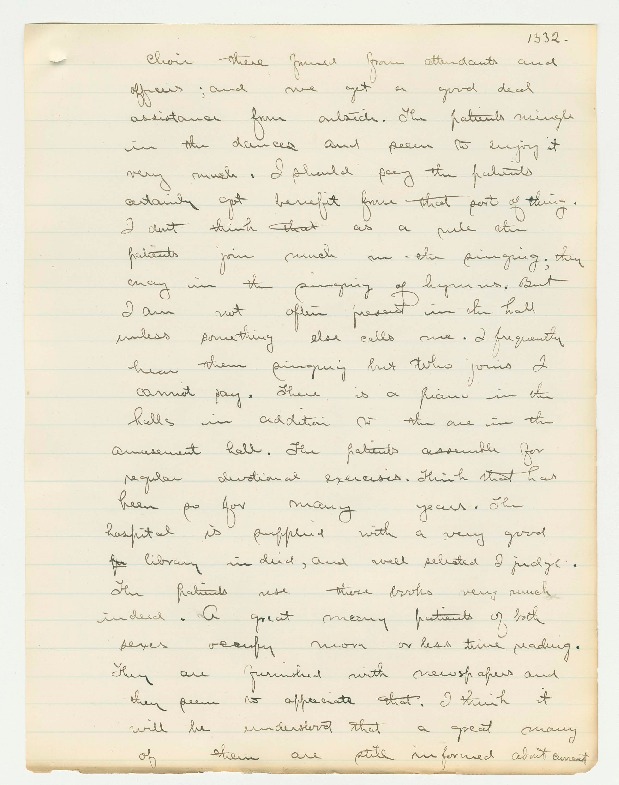 1532.
Choir there formed from attendants and
officers; and we get a good deal
assistance from outside. The patients mingle
in the dances and seem to enjoy it
very much. I should say the patients
certainly get benefit from that sort of thing.
I dont think that as a rule the
patients join much in the singing; they
may in the singing of hymns. But
I am not often present in the hall
unless something else calls me. I frequently
hear them singing but who joins I
cannot say. There is a piano in the
halls in addition to the one in the
amusement hall. The patients assemble for
regular devotional exercises. Think that has
been so for many years. The
hospital is supplied with a very good
library indeed, and well selected I judge.
The patients use those books very much
indeed. A great many patients of both
sexes occupy more or less time reading.
They are furnished with newspapers and
they seem to appreciate that. I think it
will be understood that a great many
of them are still informed about current